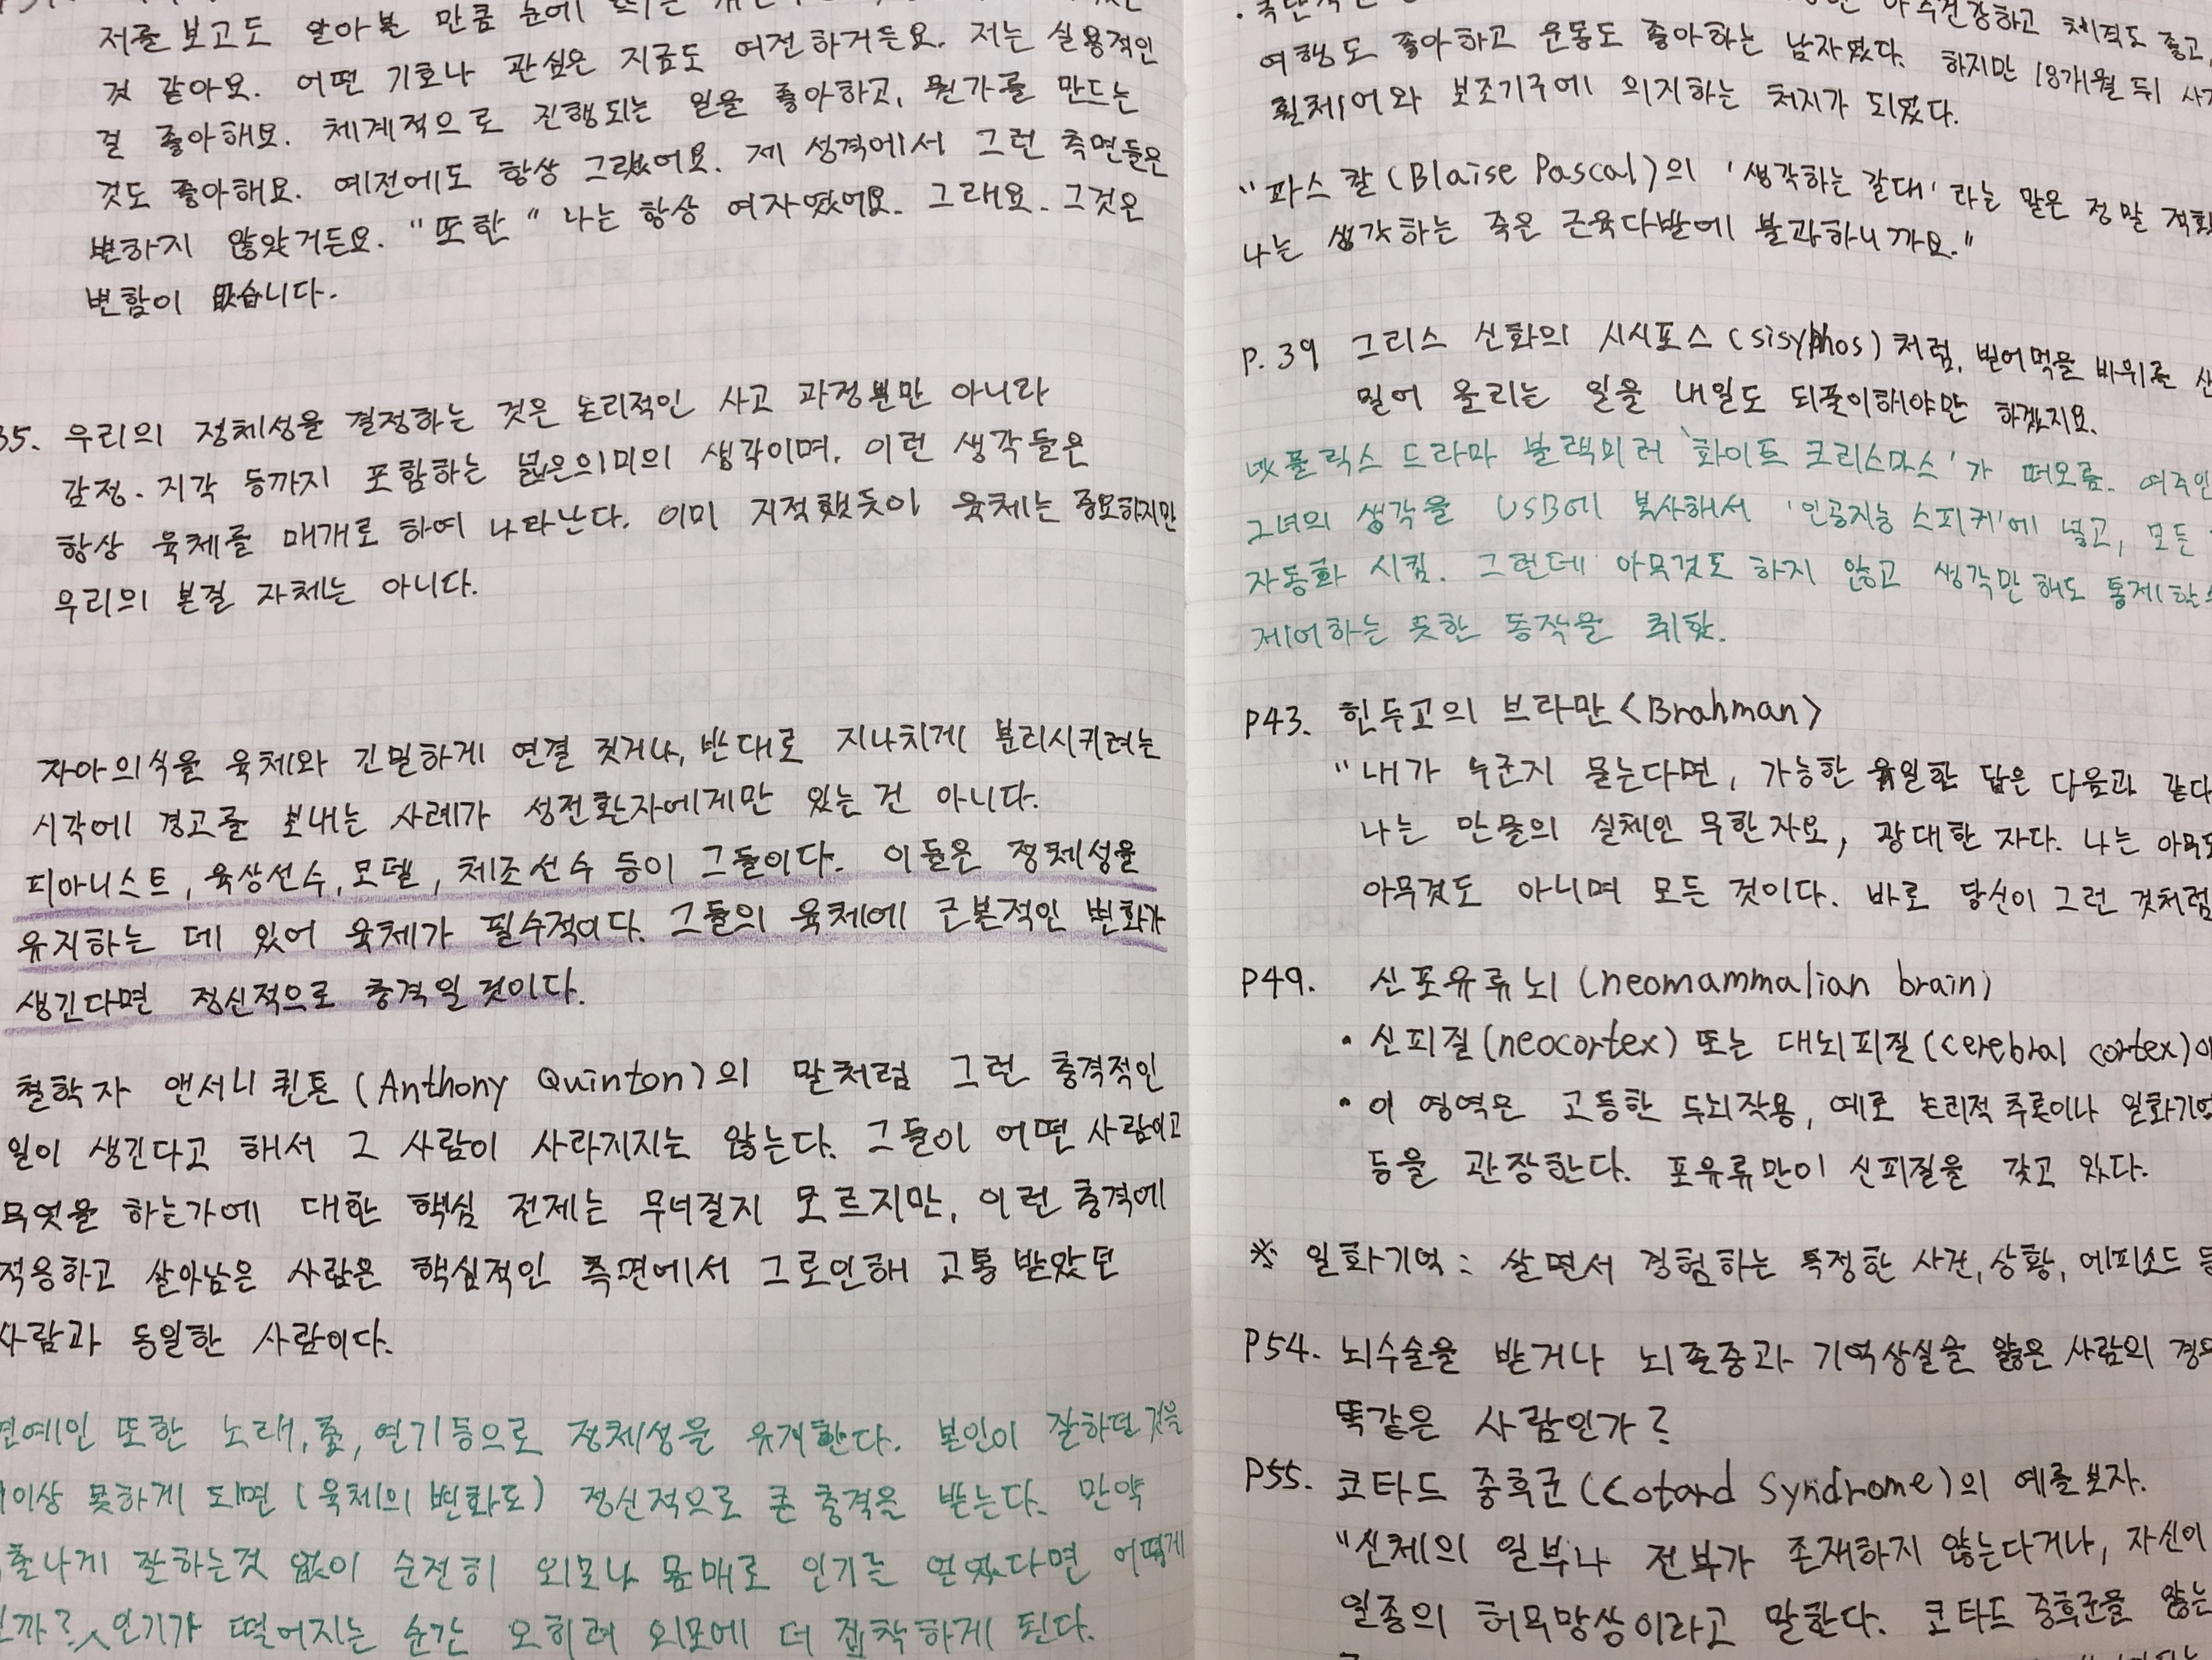 저를 보고도 알아볼 만큼 눈에
것 같아요. 어떤 기호나 관심은 지금도 여전하거든요. 저는 실용적인
걸 좋아해요. 체계적으로 진행되는 일을 좋아하고, 뭔가를 만드는
것도 좋아해요. 예전에도 항상 그랬어요. 제 성격에서 그런 측면들은
변하지 않았거든요. "또한" 나는 항상 여자였어요. 그래요. 그것은
변함이 없습니다.
35. 우리의 정체성을 결정하는 것은 논리적인 사고 과정뿐만 아니라
감정·지각 등까지 포함하는 넓은의미의 생각이며, 이런 생각들은
항상 육체를 매개로 하여 나타난다. 이미 지적했듯이 육체는 중요하지만
우리의 본질 자체는 아니다.
자아의식을 육체와 긴밀하게 연결 짓거나, 반대로 지나치게 분리시키려는
시각에 경고를 보내는 사례가 성전환자에게만 있는 건 아니다.
피아니스트, 육상선수, 모델, 체조선수 등이 그들이다. 이들은 정체성을
유지하는 데 있어 육체가 필수적이다. 그들의 육체에 근본적인 변화가
생긴다면 정신적으로 충격일 것이다.
철학자 앤서니 퀸튼(Anthony Quinton)의 말처럼 그런 충격적인
일이 생긴다고 해서 그 사람이 사라지지는 않는다. 그들이 어떤 사람이고
무엇을 하는가에 대한 핵심 전제는 무너질지 모르지만, 이런 충격에
적응하고 살아남은 사람은 핵심적인 측면에서 그로인해 고통 받았던
사람과 동일한 사람이다.
연예인 또한 노래, 춤, 연기등으로 정체성을 유지한다. 본인이 잘하던 것을
이상 못하게 되면 (육체의 변화도) 정신적으로 큰 충격을 받는다. 만약
출나게 잘하는것 없이 순전히 외모나 몸매로 인기를 얻었다면 어떻게
까? 인기가 떨어지는 순간 오히려 외모에 더 집착하게 된다.
건강하고 체격도 좋고,
여행도 좋아하고 운동도 좋아하는 남자였다. 하지만 18개월 뒤
휠체어와 보조기구에 의지하는 처지가 되었다.
"파스칼(Blaise Pascal)의 '생각하는 갈대'라는 말은 정말 적확
나는 생각하는 죽은 근육다발에 불과하니까요."
P.39 그리스 신화의 시시포스(sisyphos)처럼, 빌어먹을 바위를 산
밀어 올리는 일을 내일도 되풀이해야만 하겠지요.
넷플릭스 드라마 블랙미러 '화이트 크리스마스'가 떠오름. 여주인
그녀의 생각을 USB에 복사해서 '인공지능 스피커'에 넣고, 모든
자동화 시킴. 그런데 아무것도 하지 않고 생각만 해도 통제할
제어하는 듯한 동작을 취함.
P43. 힌두교의 브라만<Brahman>
"내가 누군지 묻는다면, 가능한 유일한 답은 다음과 같다
나는 만물의 실체인 무한자요, 광대한 자다. 나는 아무도
아무것도 아니며 모든 것이다. 바로 당신이 그런 것처럼
P49. 신포유류뇌(neomammalian brain)
• 신피질(neocortex) 또는 대뇌피질(cerebral cortex)이
• 이 영역은 고등한 두뇌작용, 예로 논리적 추론이나 일화기억
등을 관장한다. 포유류만이 신피질을 갖고 있다.
※ 일화기억: 살면서 경험하는 특정한 사건, 상황, 에피소드 등
P54. 뇌수술을 받거나 뇌졸중과 기억상실을 앓은 사람의 경우
똑같은 사람인가?
P55. 코타드 증후군(Cotard Syndrome)의 예를보자.
"신체의 일부나 전부가 존재하지 않는다거나, 자신이
일종의 허무망상이라고 말한다. 코타드 증후군을 앓는